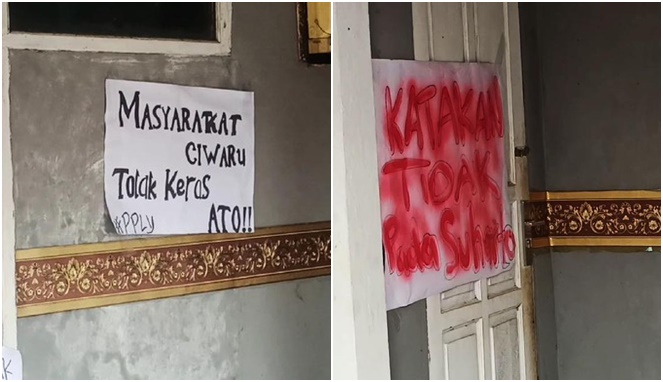 MASYARAKAT
CIWARU
Tolak Keras
ATO!!
#PPLY
KATAKAN
TIDAK
Pada Suharto
K